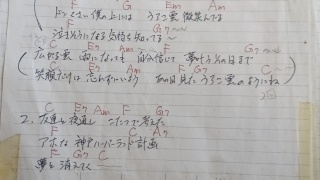 F G Em Am
どっさい僕の上には うろこ雲 微笑んでる
F G7〜
泣きそうになる気持ち知ってる〜
C E7 Am F G7〜
広がる雲 雨になっても 自分信じて 夢叶うその日まで
C E7 Am F G7 C
笑顔だけは忘れずにいよう あの日見た うろこ雲のようにね
C E7 Am F
2. 友達と夜通し こたつで考えた
F C A7
アホな 神戸ハーバーランド計画
F G7 C
夢も消えてく